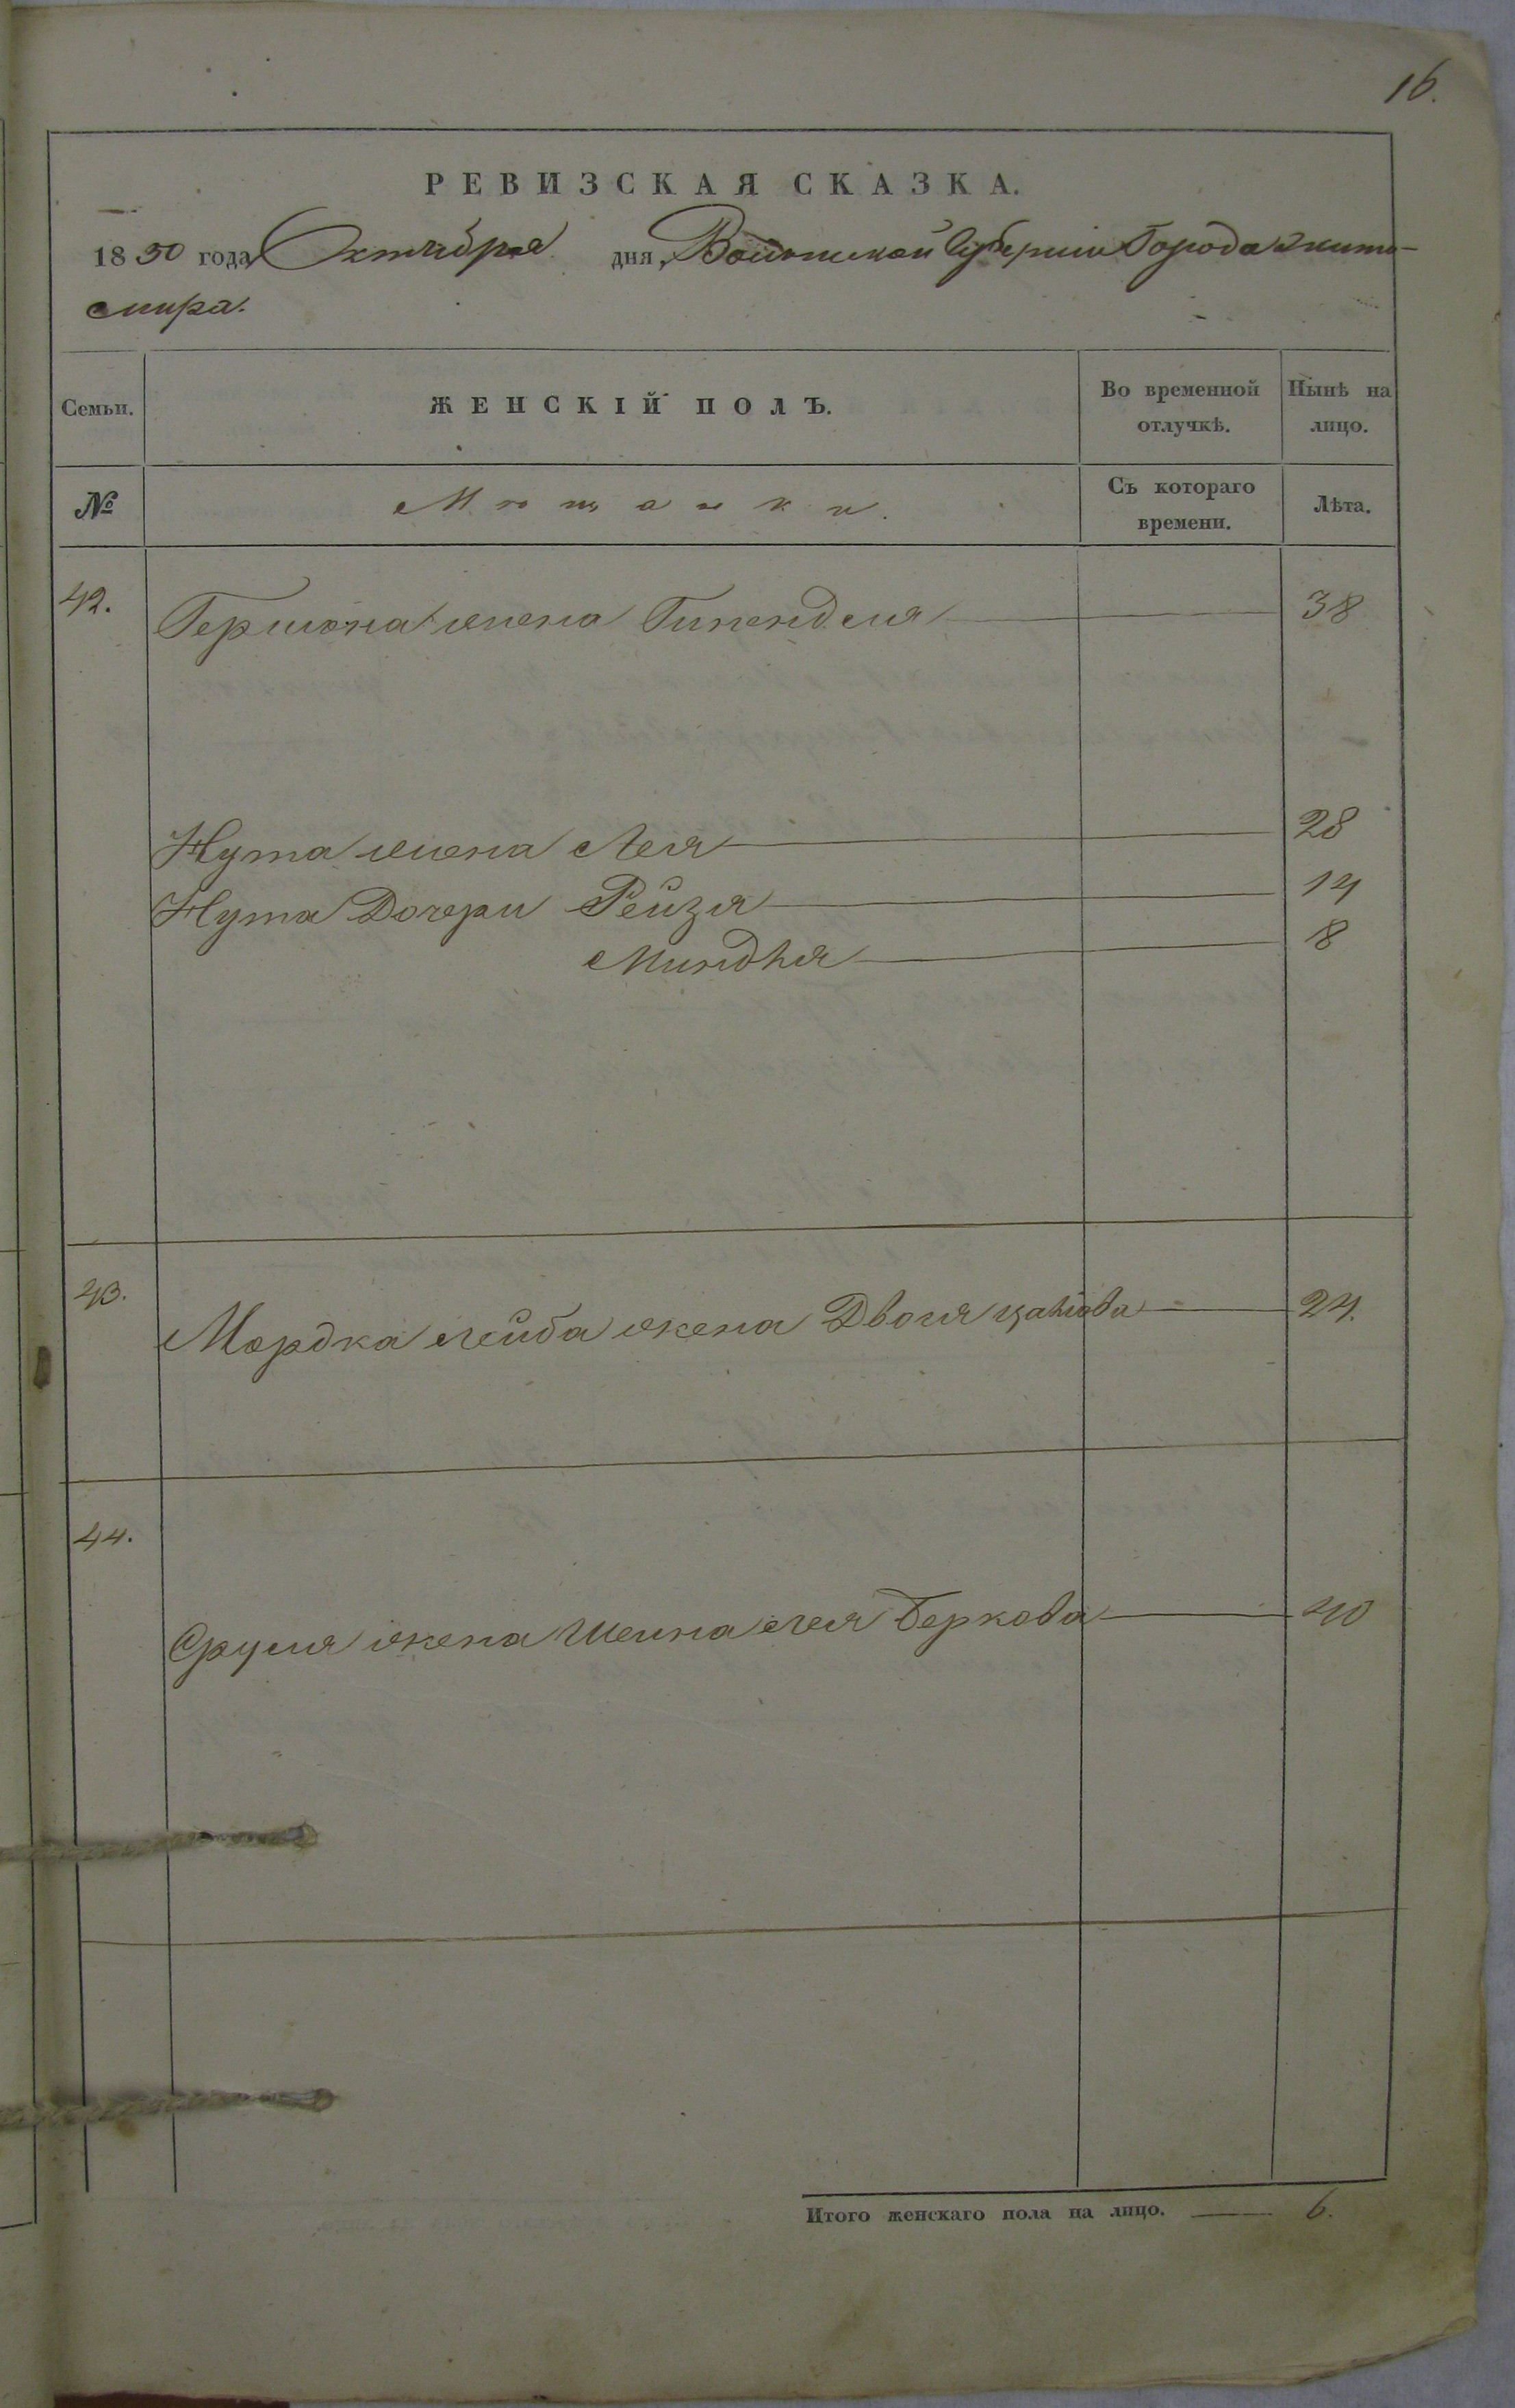 16.
РЕВИЗСКАЯ СКАЗКА.
1850 года Октября дня, Волынской Губернии Города Жито-
мира.
Семьи. ЖЕНСКІЙ ПОЛЪ. Во временной отлучкѣ. Нынѣ на лицо.
№ Мѣщанки. Съ котораго времени. Лѣта.
42. Гершона жена Гипендля 38
Нута жена Лея 28
Нута Дочери Рейзя 14
Миндля 8
43. Мордка Лейба жена Двося 24.
44. Сруля жена Шейна Лея Беркова 40
Итого женскаго пола на лицо. 6.